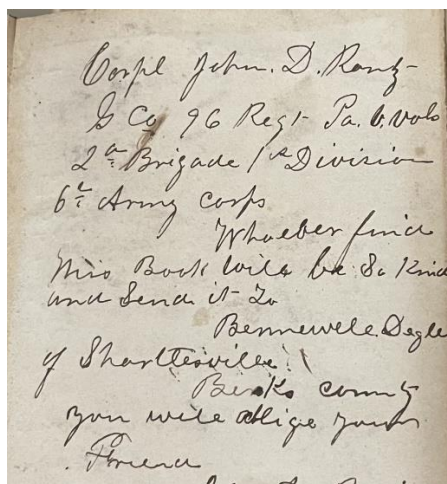 Corpl John. D. Rantz
G Co 96 Regt Pa. V. vols
2d Brigade 1st Division
6t Army Corps
Whoeber find
this Book will be So Kind
and Send it To
Bennewele. Degle
of Shartlesville
Berks county
you will oblige your
Friend